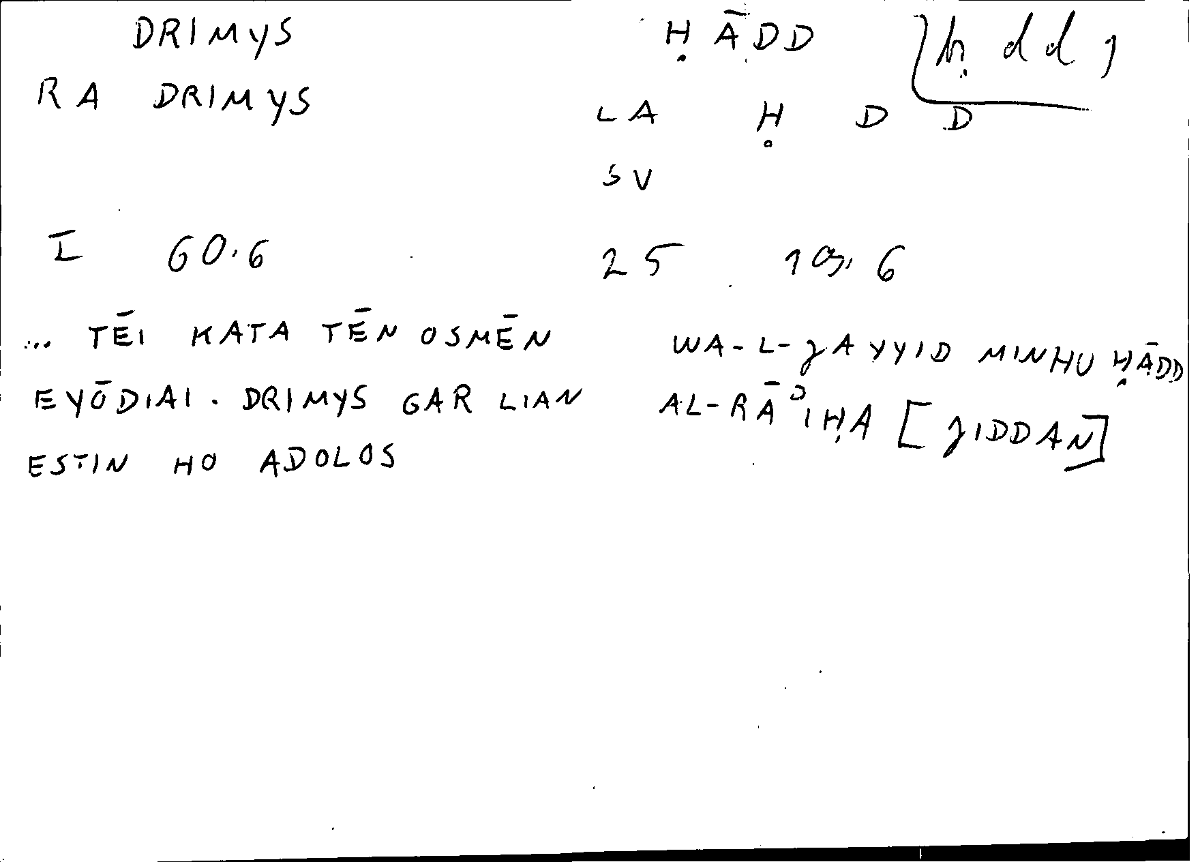 DRIMYS ḤĀDD ḥdd1
RA DRIMYS LA Ḥ D D
SV
I 60.6 25 109.6
... TĒI KATA TĒN OSMĒN WA-L-JAYYID MINHU ḤĀDD
EYŌDIAI. DRIMYS GAR LIAN AL-RĀʾIḤA [JIDDAN]
ESTIN HO ADOLOS